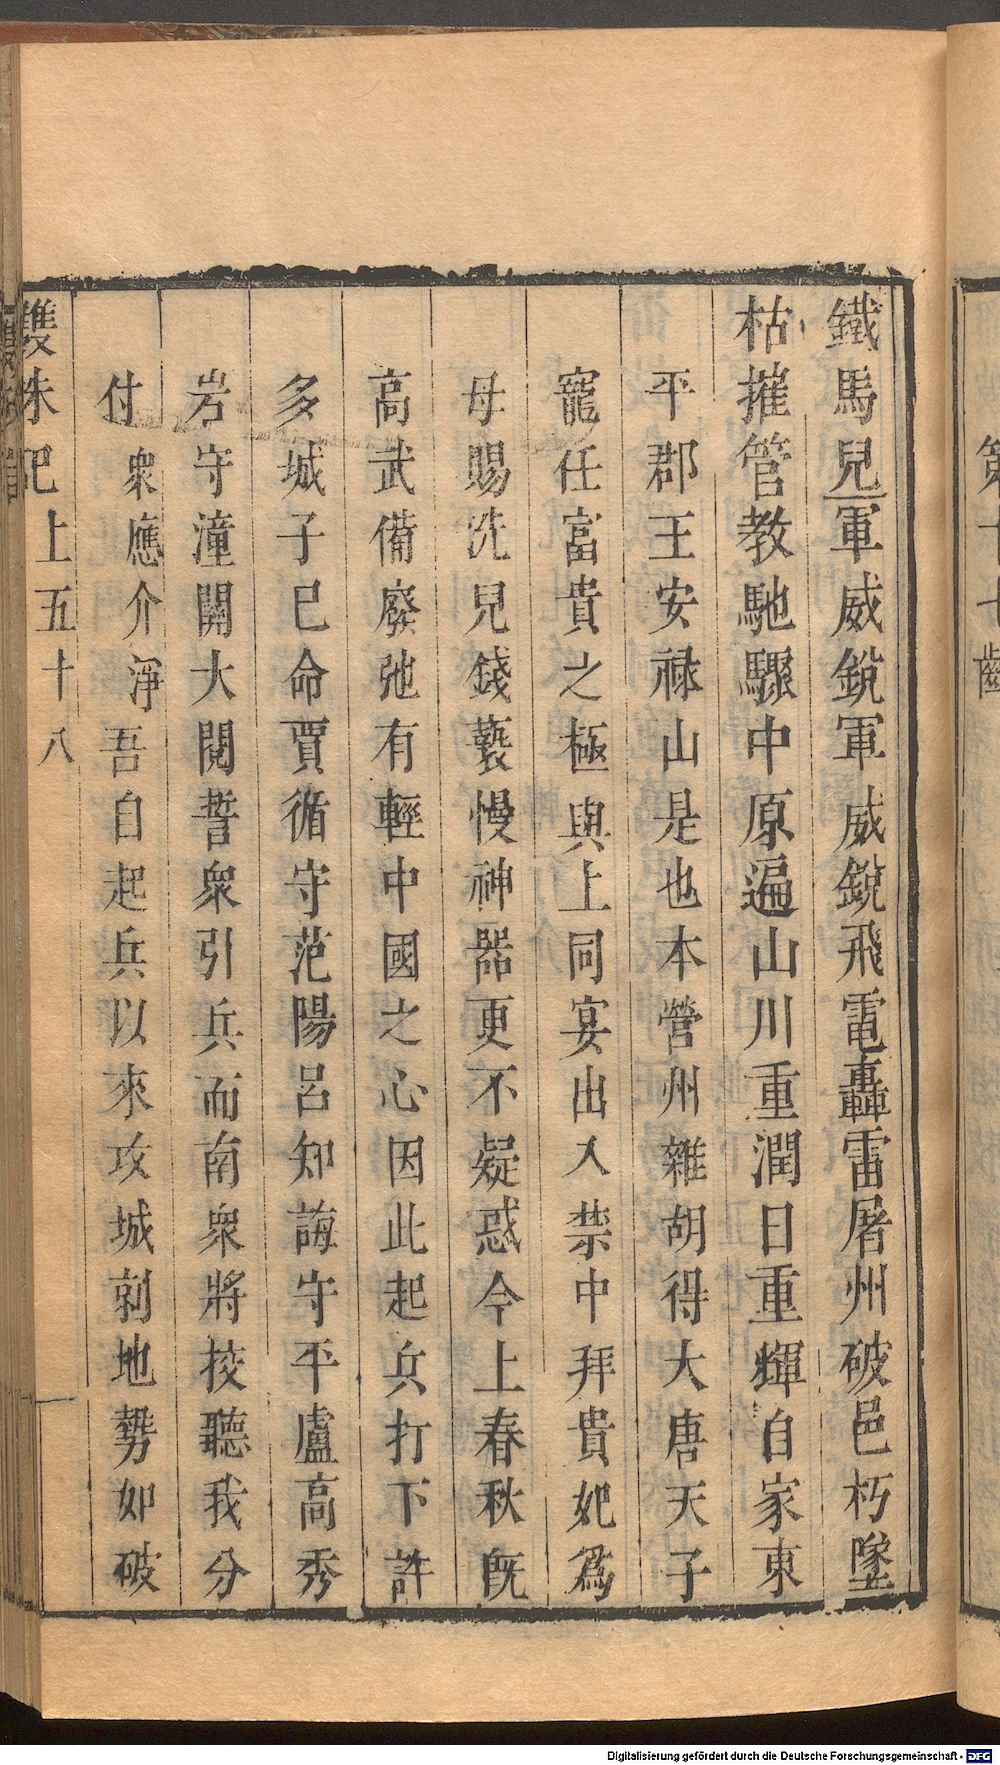 鐵馬兒軍威銳軍威銳飛電轟雷屠州破邑朽墜
枯摧管教馳驟中原遍山川重潤日重輝自家東
平郡王安祿山是也本營州雜胡得大唐天子
寵任富貴之極與上同宴出入禁中拜貴妃爲
母賜洗兒錢褻慢神器更不疑惑今上春秋旣
高武備廢弛有輕中國之心因此起兵打下許
多城子已命賈循守范陽呂知誨守平盧高秀
岩守潼關大閱誓衆引兵而南衆將挍聽我分
付衆應介淨吾自起兵以來攻城剠地勢如破
雙珠記上五十八
第十七齣
Digitalisierung gefördert durch die Deutsche Forschungsgemeinschaft - DFG